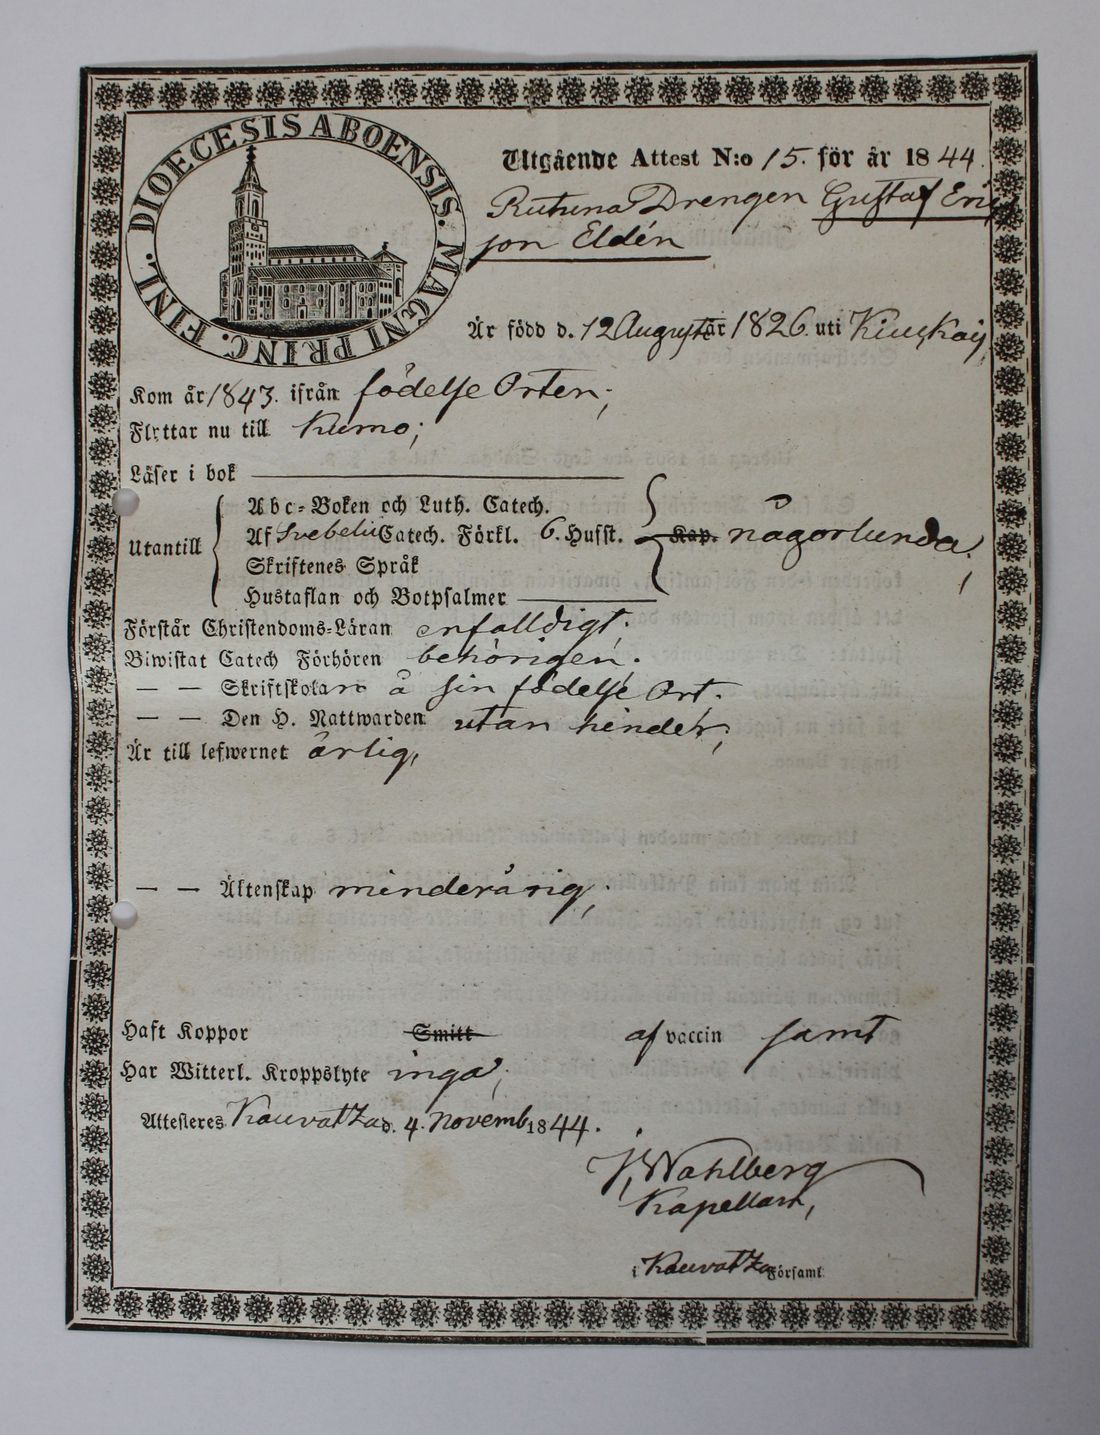 DIOECESIS ABOENSIS. MAGNI PRINC. FINL.
Utgående Attest N:o 15. för år 1844.
Drengen Gustaf Eric
son Eldén
Är född d. 12 Augusti år 1826. uti
Kom år 1843. ifrån födelse Orten;
Flyttar nu till Kumo;
Läser i bok
Abc-Boken och Luth. Catech.
Utantill Af Svebelii Catech. Förkl. 6. Husst. Kap. någorlunda;
Skriftenes Språk
Hustaflan och Botpsalmer
Förstår Christendoms-Läran enfaldigt;
Biwistat Catech Förhören behörigen.
— — Skriftskolan å sin födelse Ort.
— — Den H. Nattwarden utan hinder;
Är till lefwernet ärlig,
— — Äktenskap minderårig;
Haft Koppor Smitt af vaccin samt
Har Witterl. Kroppslyte inga;
Attesteres Kauvatza d. 4. Novemb 1844.
J, Wahlberg
Kapellan,
i Kauvatza Församl.